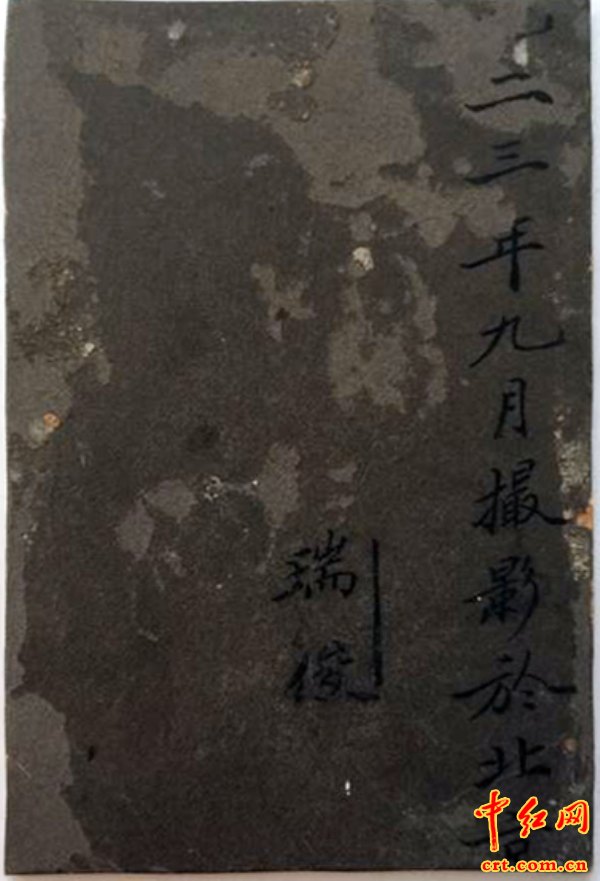 二三年九月撮影於北
瑞俊
中红网
crt.com.cn